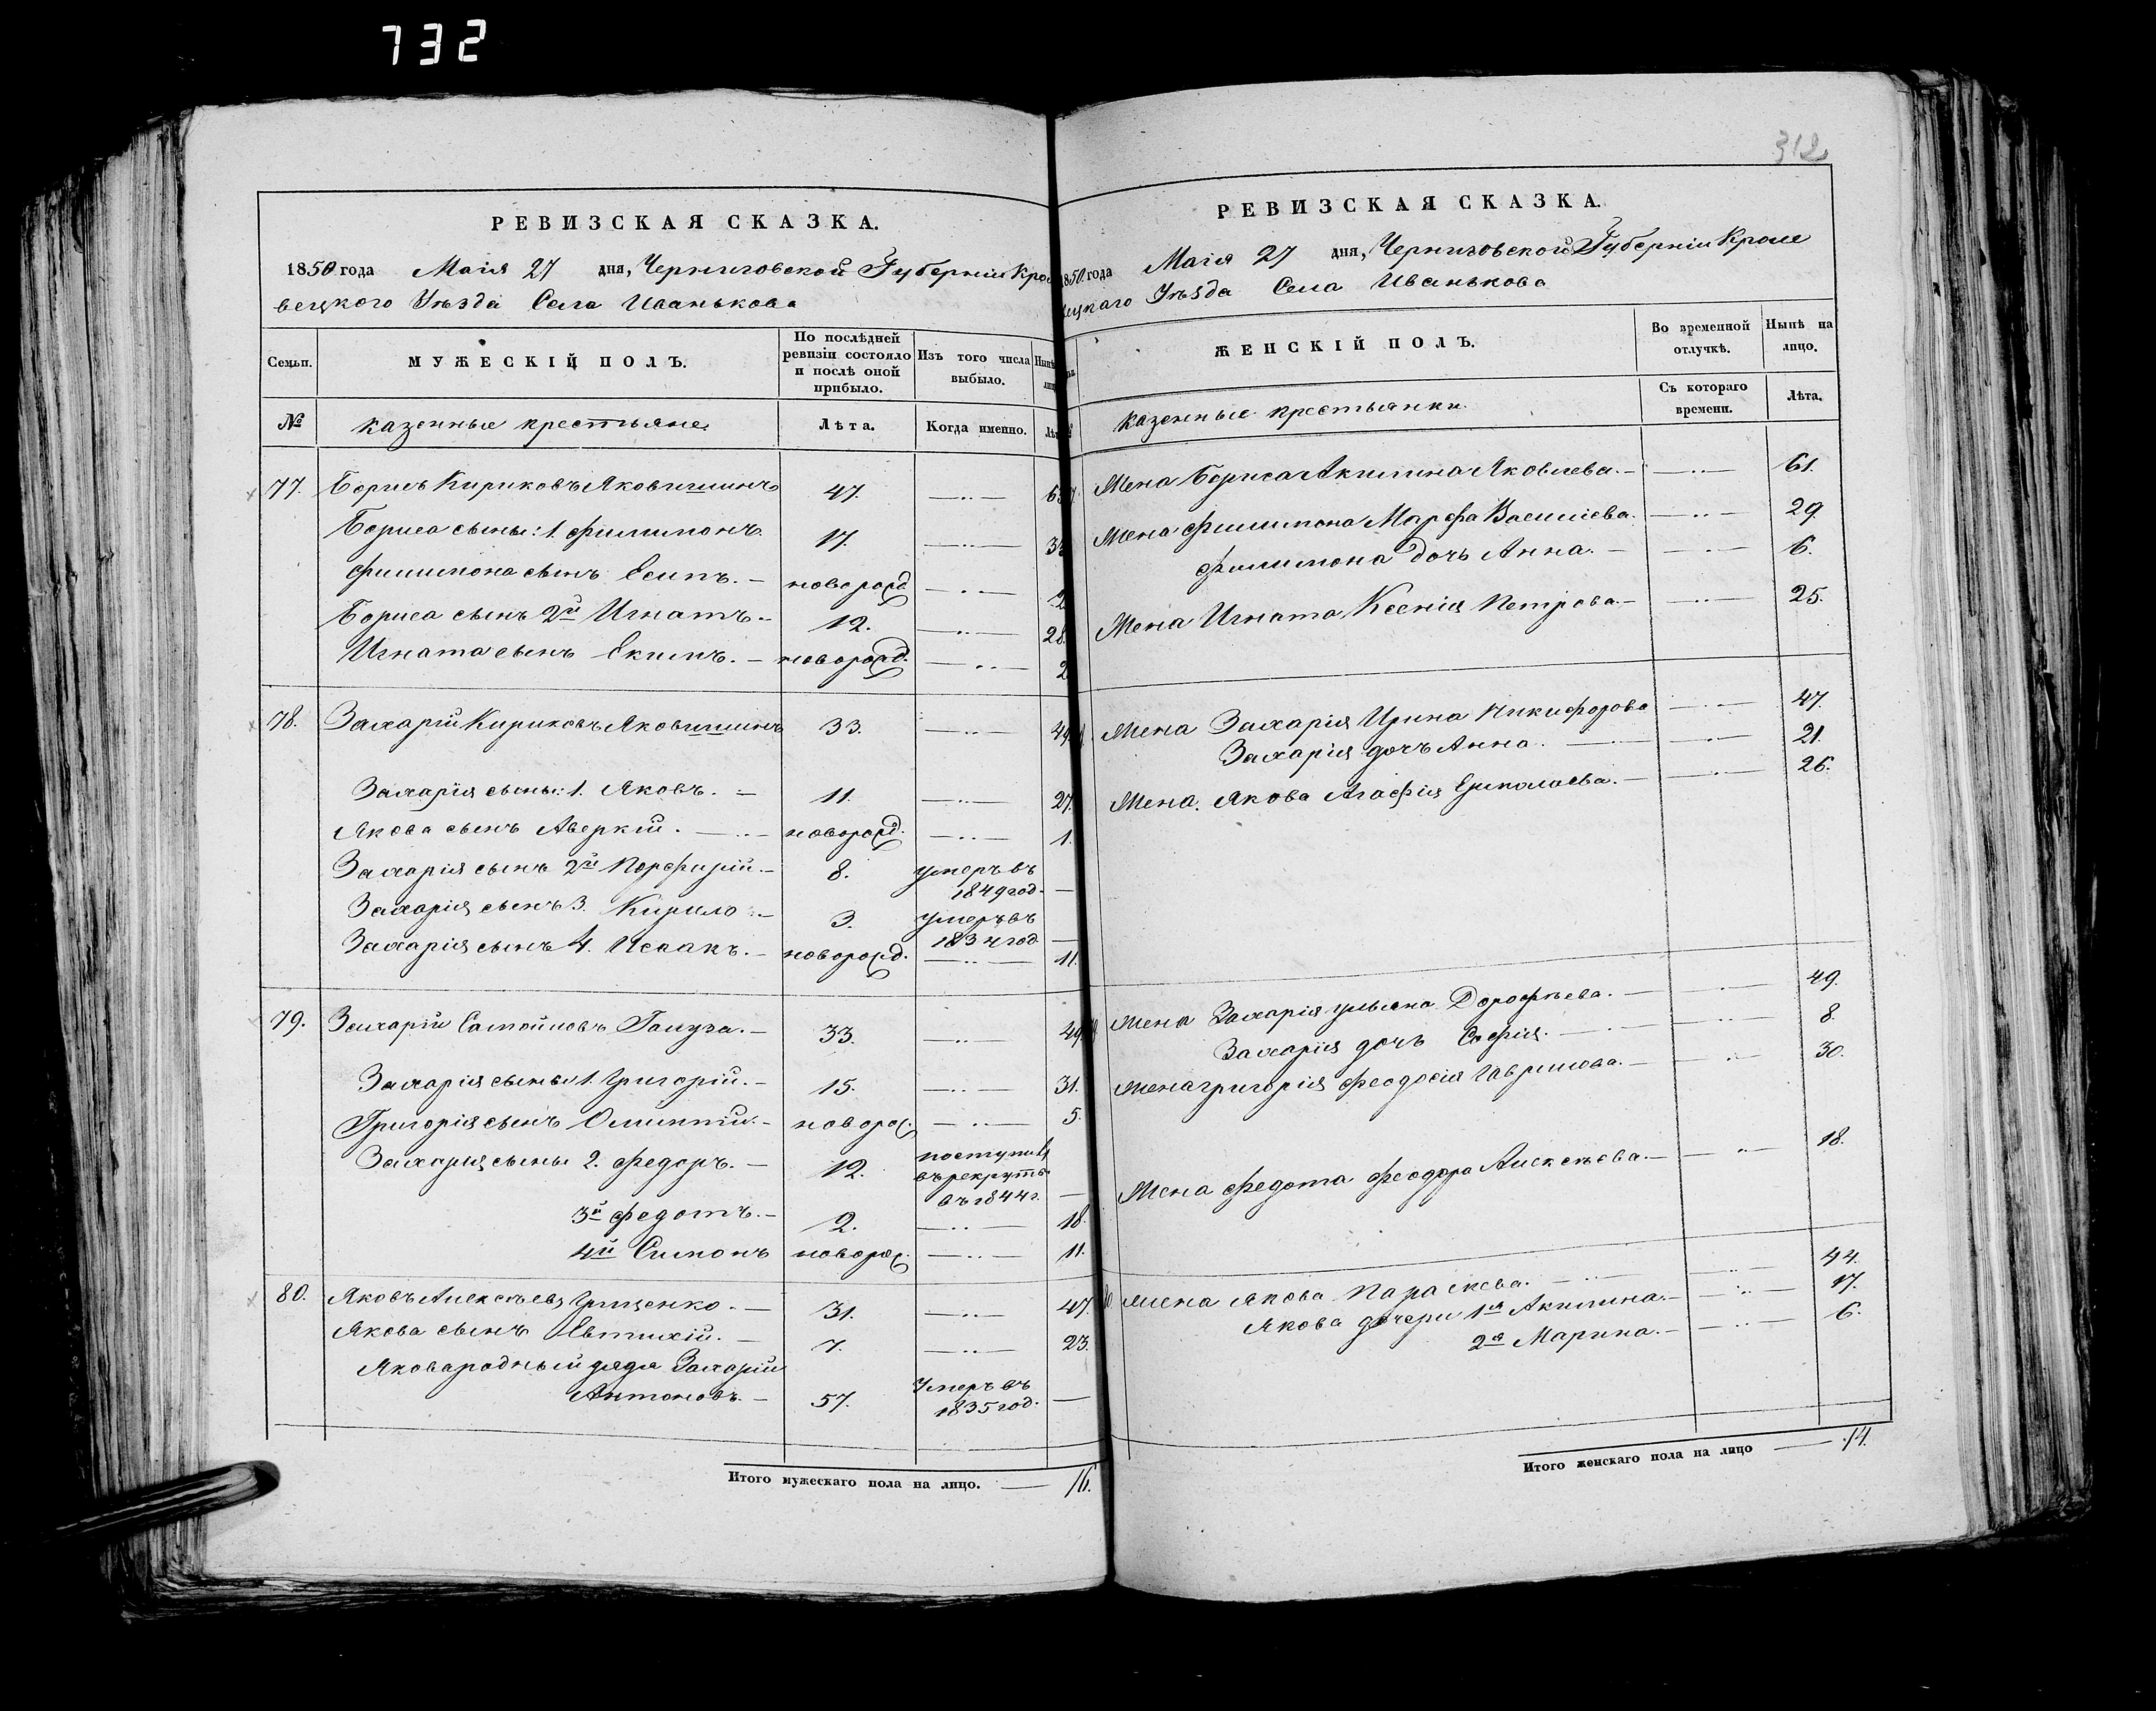 732
РЕВИЗСКАЯ СКАЗКА.
1850 года Маія 27 дня, Черниговской Губерніи Кро
вецкого Уѣзда Села Иванькова
Семьи.
МУЖЕСКІЙ ПОЛЪ.
По послѣдней
ревизіи состояло
и послѣ оной
прибыло.
Изъ того числа
выбыло.
№
казенные крестьяне
Лѣта.
Когда именно.
77. Борисъ Кириковъ 47.
Бориса сыны: 1. Филимонъ. 17.
Филимона сынъ Есипъ. новорожд
Бориса сынъ 2й Игнатъ. 12. 28.
Игната сынъ Екимъ. новорожд. 2
78. Захарій Кириковъ 33. 49
Захарія сыны: 1. Яковъ. 11. 27.
Якова сынъ Аверкій. новорожд. 1.
Захарія сынъ 2й Порфирій. 8. умеръ въ
1849 год.
Захарія сынъ 3. Кирило 3. умеръ въ
1834 год.
Захарія сынъ 4. Исаакъ. новорожд. 11.
79. Захарій Самойловъ 33. 49
Захарія сыны 1. Григорій. 15. 31.
Григорія сынъ новорож. 5.
Захарія сыны 2. Федоръ. 12. поступив
въ рекруты
въ 1844 г.
3й Федотъ. 2. 18.
4й Симонъ новорож. 11.
80. Яковъ Алексѣевъ Гриценко. 31. 47.
Якова сынъ Евтихій. 7. 23.
Якова родный дядя Захарій
Антоновъ. 57. Умеръ въ
1835 год.
Итого мужескаго пола на лицо. 16.
312
РЕВИЗСКАЯ СКАЗКА.
1850 года Маія 27 дня, Черниговской Губерніи Кроле
вецкаго Уѣзда Села Иванькова
ЖЕНСКІЙ ПОЛЪ.
Во временной
отлучкѣ.
Нынѣ на
лицо.
казенные крестьянки.
Съ котораго
времени.
Лѣта.
Жена Бориса Акилина Яковлева. 61.
Жена Филимона Марфа Васильева. 29.
Филимона дочь Анна. 6.
Жена Игната Ксенія Петрова. 25.
Жена Захарія Ирина Никифорова 47.
Захарія дочь Анна. 21.
Жена Якова Агафія Ермолаева. 26.
Жена Захарія Ульяна Дорофѣева. 49.
Захарія дочь Софія. 8.
Жена Григорія Феодосія Гаврилова. 30.
Жена Федота Феодора Алексѣева. 18.
Жена Якова Параскева. 44.
Якова дочери 1я Акилина. 17.
2я Марина. 6.
Итого женскаго пола на лицо 14.